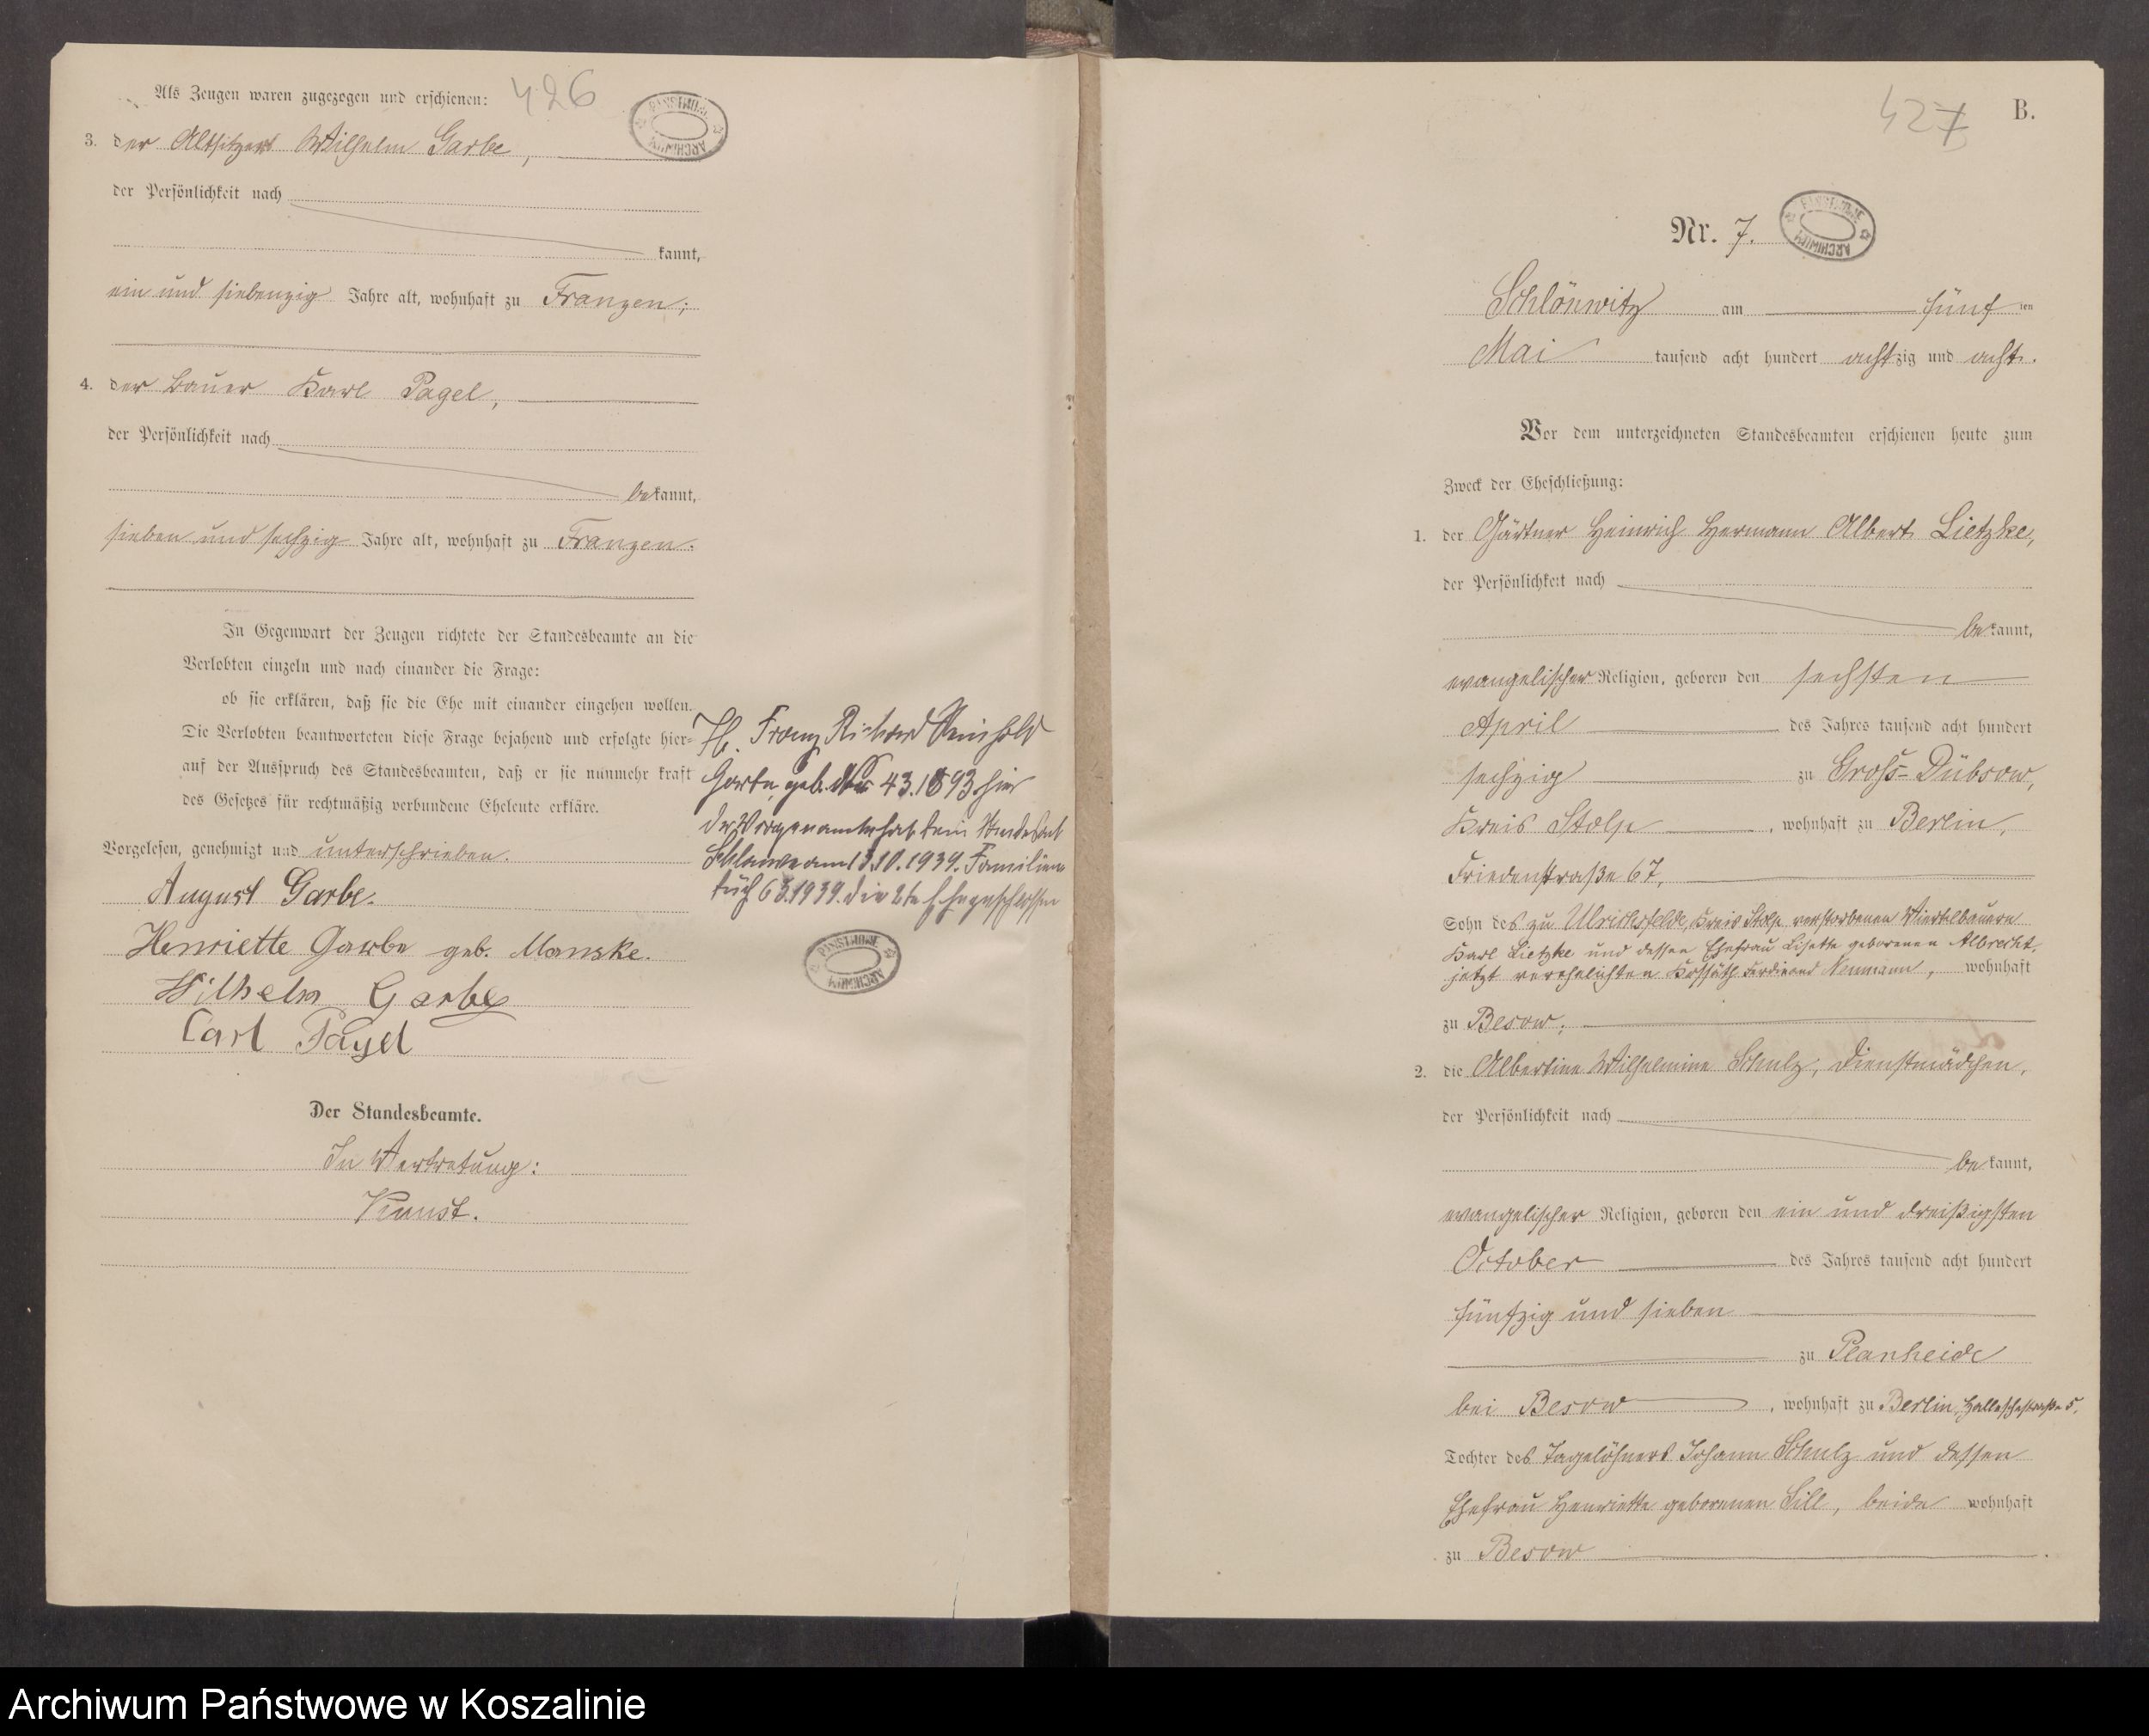 426
Als Zeugen waren zugezogen und erschienen:
3. der Altsitzer Wilhelm Garbe,
der Persönlichkeit nach
kannt,
ein und siebenzig Jahre alt, wohnhaft zu Franzen;
4. der Bauer Karl Pagel,
der Persönlichkeit nach
bekannt,
sieben und sechzig Jahre alt, wohnhaft zu Franzen.
In Gegenwart der Zeugen richtete der Standesbeamte an die
Verlobten einzeln und nach einander die Frage:
ob sie erklären, daß sie die Ehe mit einander eingehen wollen.
Die Verlobten beantworteten diese Frage bejahend und erfolgte hier-
auf der Ausspruch des Standesbeamten, daß er sie nunmehr kraft
des Gesetzes für rechtmäßig verbundene Eheleute erkläre.
Vorgelesen, genehmigt und unterschrieben.
August Garbe.
Henriette Garbe geb. Manske.
Wilhelm Garbe
Carl Pagel
Der Standesbeamte.
In Vertretung:
Kunst.
Franz Richard Reinhold
Garbe, geb. 4.3.1893 hier
Der Vorgenannte hat beim Standesamt
Schlawe am 13.10.1939. Familien
buch 63.1939. die 2te Ehe geschlossen
PAŃSTWOWE ARCHIWUM
427
B.
Nr. 7.
PAŃSTWOWE ARCHIWUM
Schlönwitz am fünf ten
Mai tausend acht hundert achtzig und acht.
Vor dem unterzeichneten Standesbeamten erschienen heute zum
Zweck der Eheschließung:
1. der Gärtner Heinrich Hermann Albert Lietzke,
der Persönlichkeit nach
bekannt,
evangelischer Religion, geboren den sechsten
April des Jahres tausend acht hundert
sechzig zu Groß-Dübsow,
Kreis Stolp, wohnhaft zu Berlin,
Friedenstraße 67,
Sohn des zu Ulrichsfelde, Kreis Stolp verstorbenen Viertelbauern
Karl Lietzke und dessen Ehefrau Lisette geborenen Albrecht,
jetzt verehelichten Kossäth Ferdinand Neumann, wohnhaft
zu Besow;
2. die Albertine Wilhelmine Schulz, Dienstmädchen,
der Persönlichkeit nach
bekannt,
evangelischer Religion, geboren den ein und dreißigsten
October des Jahres tausend acht hundert
fünfzig und sieben
zu Planheide
bei Besow, wohnhaft zu Berlin, Halleschestraße 5,
Tochter des Tagelöhners Johann Schulz und dessen
Ehefrau Henriette geborenen Sill, beide wohnhaft
zu Besow.
Archiwum Państwowe w Koszalinie